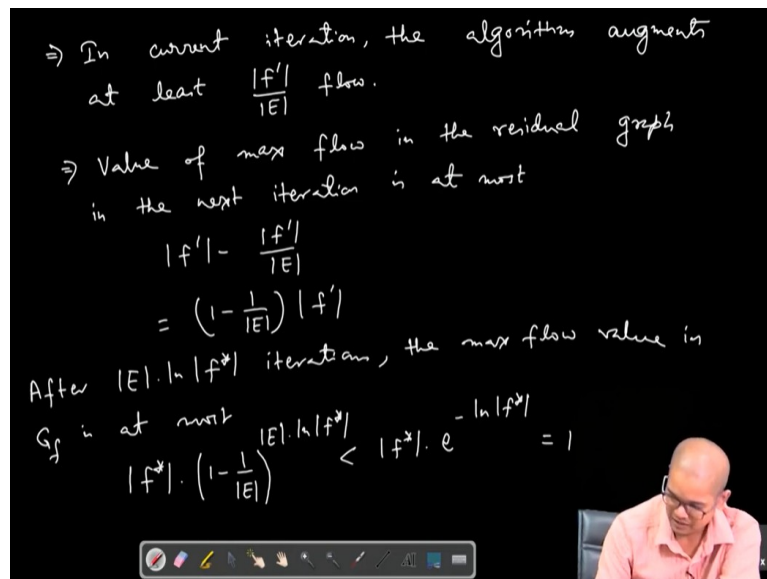 ⇒ In current iteration, the algorithm augments
at least |f'|/|E| flow.
⇒ Value of max flow in the residual graph
in the next iteration is at most
|f'| - |f'|/|E|
= (1 - 1/|E|) |f'|
After |E|. ln |f*| iterations, the max flow value in
G_f is at most
|f*|. (1 - 1/|E|)^{|E|. ln |f*|} < |f*|. e^{- ln |f*|} = 1